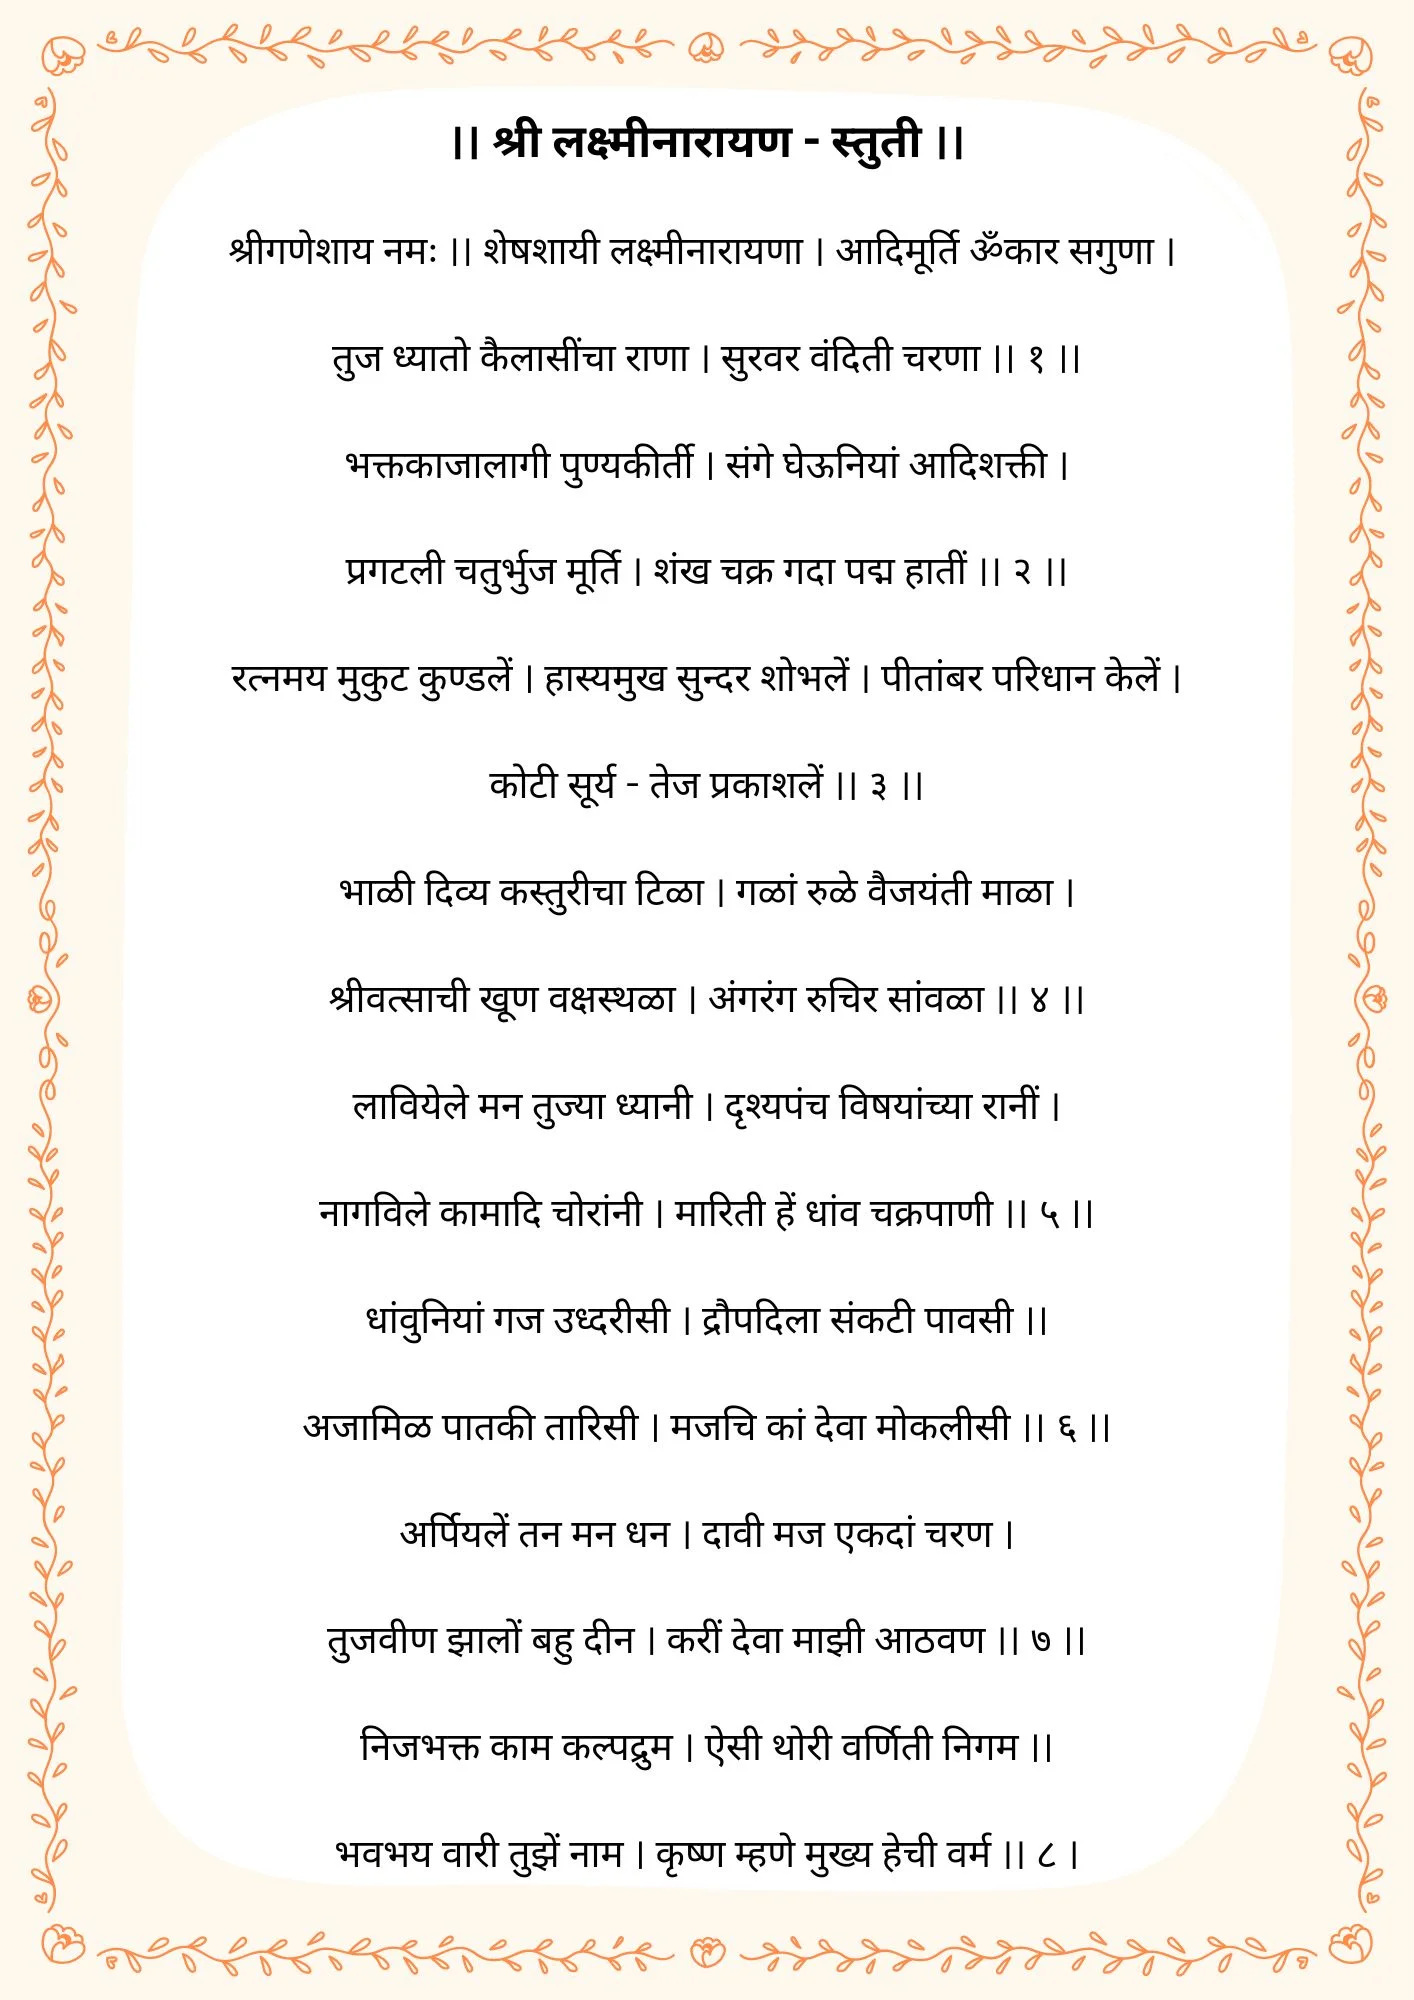 ।। श्री लक्ष्मीनारायण - स्तुती ।।
श्रीगणेशाय नमः ।। शेषशायी लक्ष्मीनारायणा । आदिमूर्ति ॐकार सगुणा ।
तुज ध्यातो कैलासींचा राणा । सुरवर वंदिती चरणा ।। १ ।।
भक्तकाजालागी पुण्यकीर्ती । संगे घेऊनियां आदिशक्ती ।
प्रगटली चतुर्भुज मूर्ति । शंख चक्र गदा पद्म हातीं ।। २ ।।
रत्नमय मुकुट कुण्डलें । हास्यमुख सुन्दर शोभलें । पीतांबर परिधान केलें ।
कोटी सूर्य - तेज प्रकाशलें ।। ३ ।।
भाळी दिव्य कस्तुरीचा टिळा । गळां रुळे वैजयंती माळा ।
श्रीवत्साची खूण वक्षस्थळा । अंगरंग रुचिर सांवळा ।। ४ ।।
लावियेले मन तुज्या ध्यानी । दृश्यपंच विषयांच्या रानीं ।
नागविले कामादि चोरांनी । मारिती हें धांव चक्रपाणी ।। ५ ।।
धांवुनियां गज उध्दरीसी । द्रौपदिला संकटी पावसी ।।
अजामिळ पातकी तारिसी । मजचि कां देवा मोकलीसी ।। ६ ।।
अर्पियलें तन मन धन । दावी मज एकदां चरण ।
तुजवीण झालों बहु दीन । करीं देवा माझी आठवण ।। ७ ।।
निजभक्त काम कल्पद्रुम । ऐसी थोरी वर्णिती निगम ।।
भवभय वारी तुझें नाम । कृष्ण म्हणे मुख्य हेची वर्म ।। ८ ।